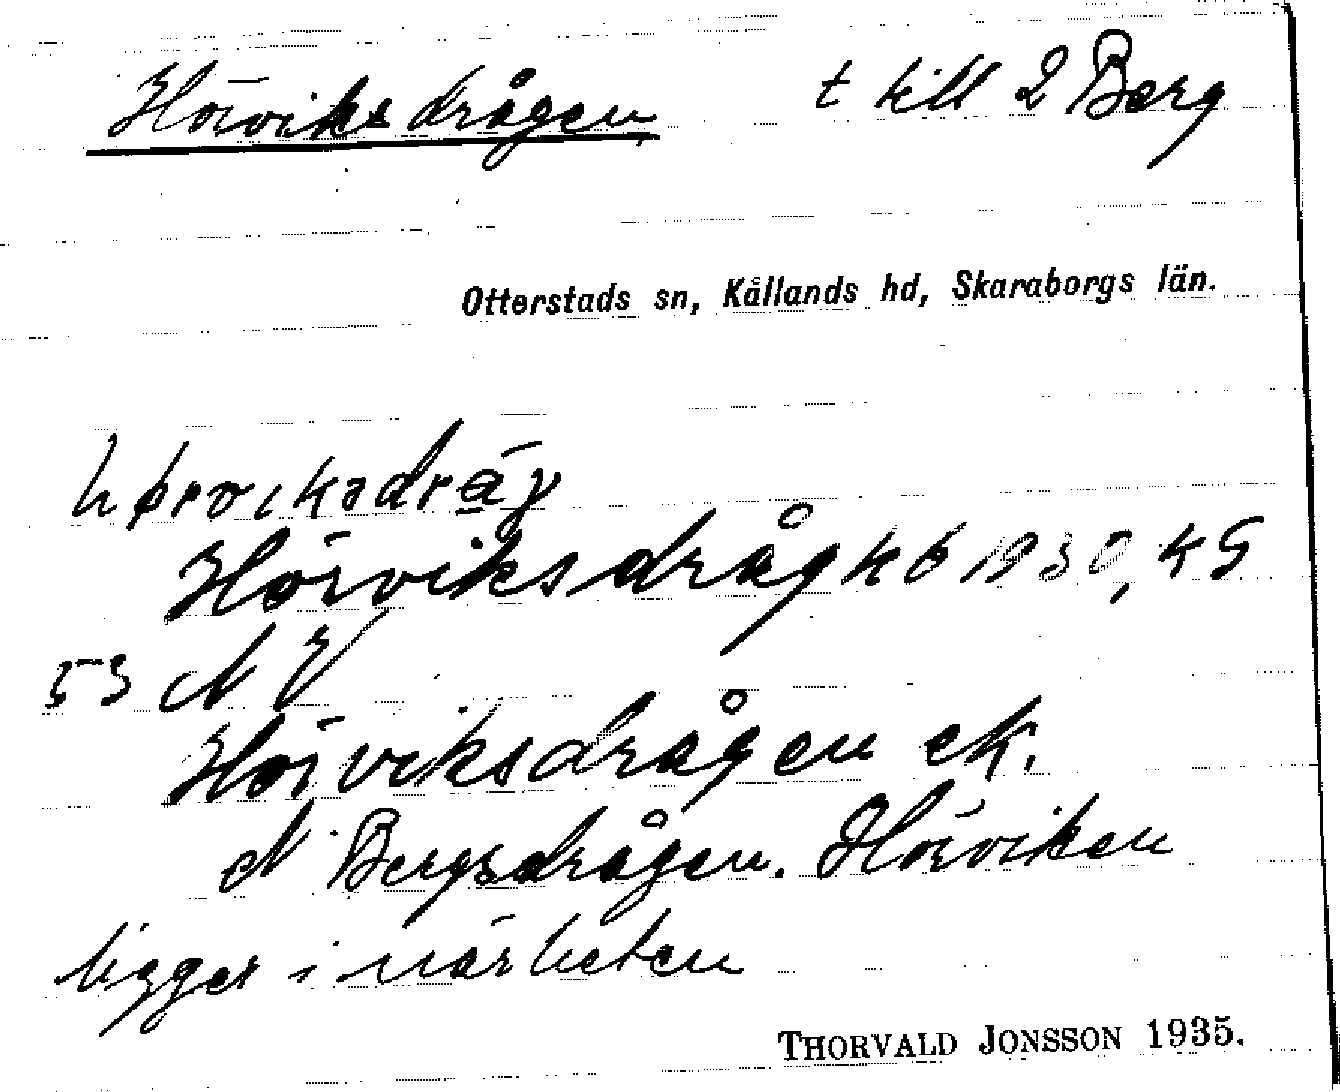 Hörviksdrågen t till 2 Berg
Otterstads sn, Kållands hd, Skaraborgs län.
Hörviksdråg kb 1930, KG
53 NV
Hörviksdrågen ek.
N Bergsdrågen. Hörviken
ligger i närheten
THORVALD JONSSON 1935.